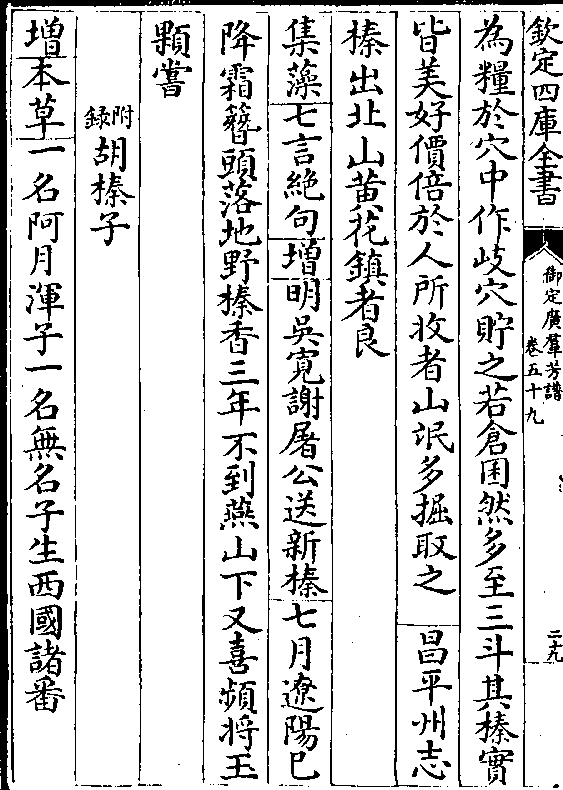 欽定四庫全書
御定廣羣芳譜
卷五十九
二十九
為糧於穴中作岐穴貯之若倉囷然多至三斗其榛實
皆美好價倍於人所收者山氓多掘取之 昌平州志
榛出北山黃花鎮者良
集藻七言絶句增明吳寛謝屠公送新榛七月遼陽巳
降霜簪頭落地野榛香三年不到燕山下又喜頻將玉
顆嘗
附錄胡榛子
增本草一名阿月渾子一名無名子生西國諸番